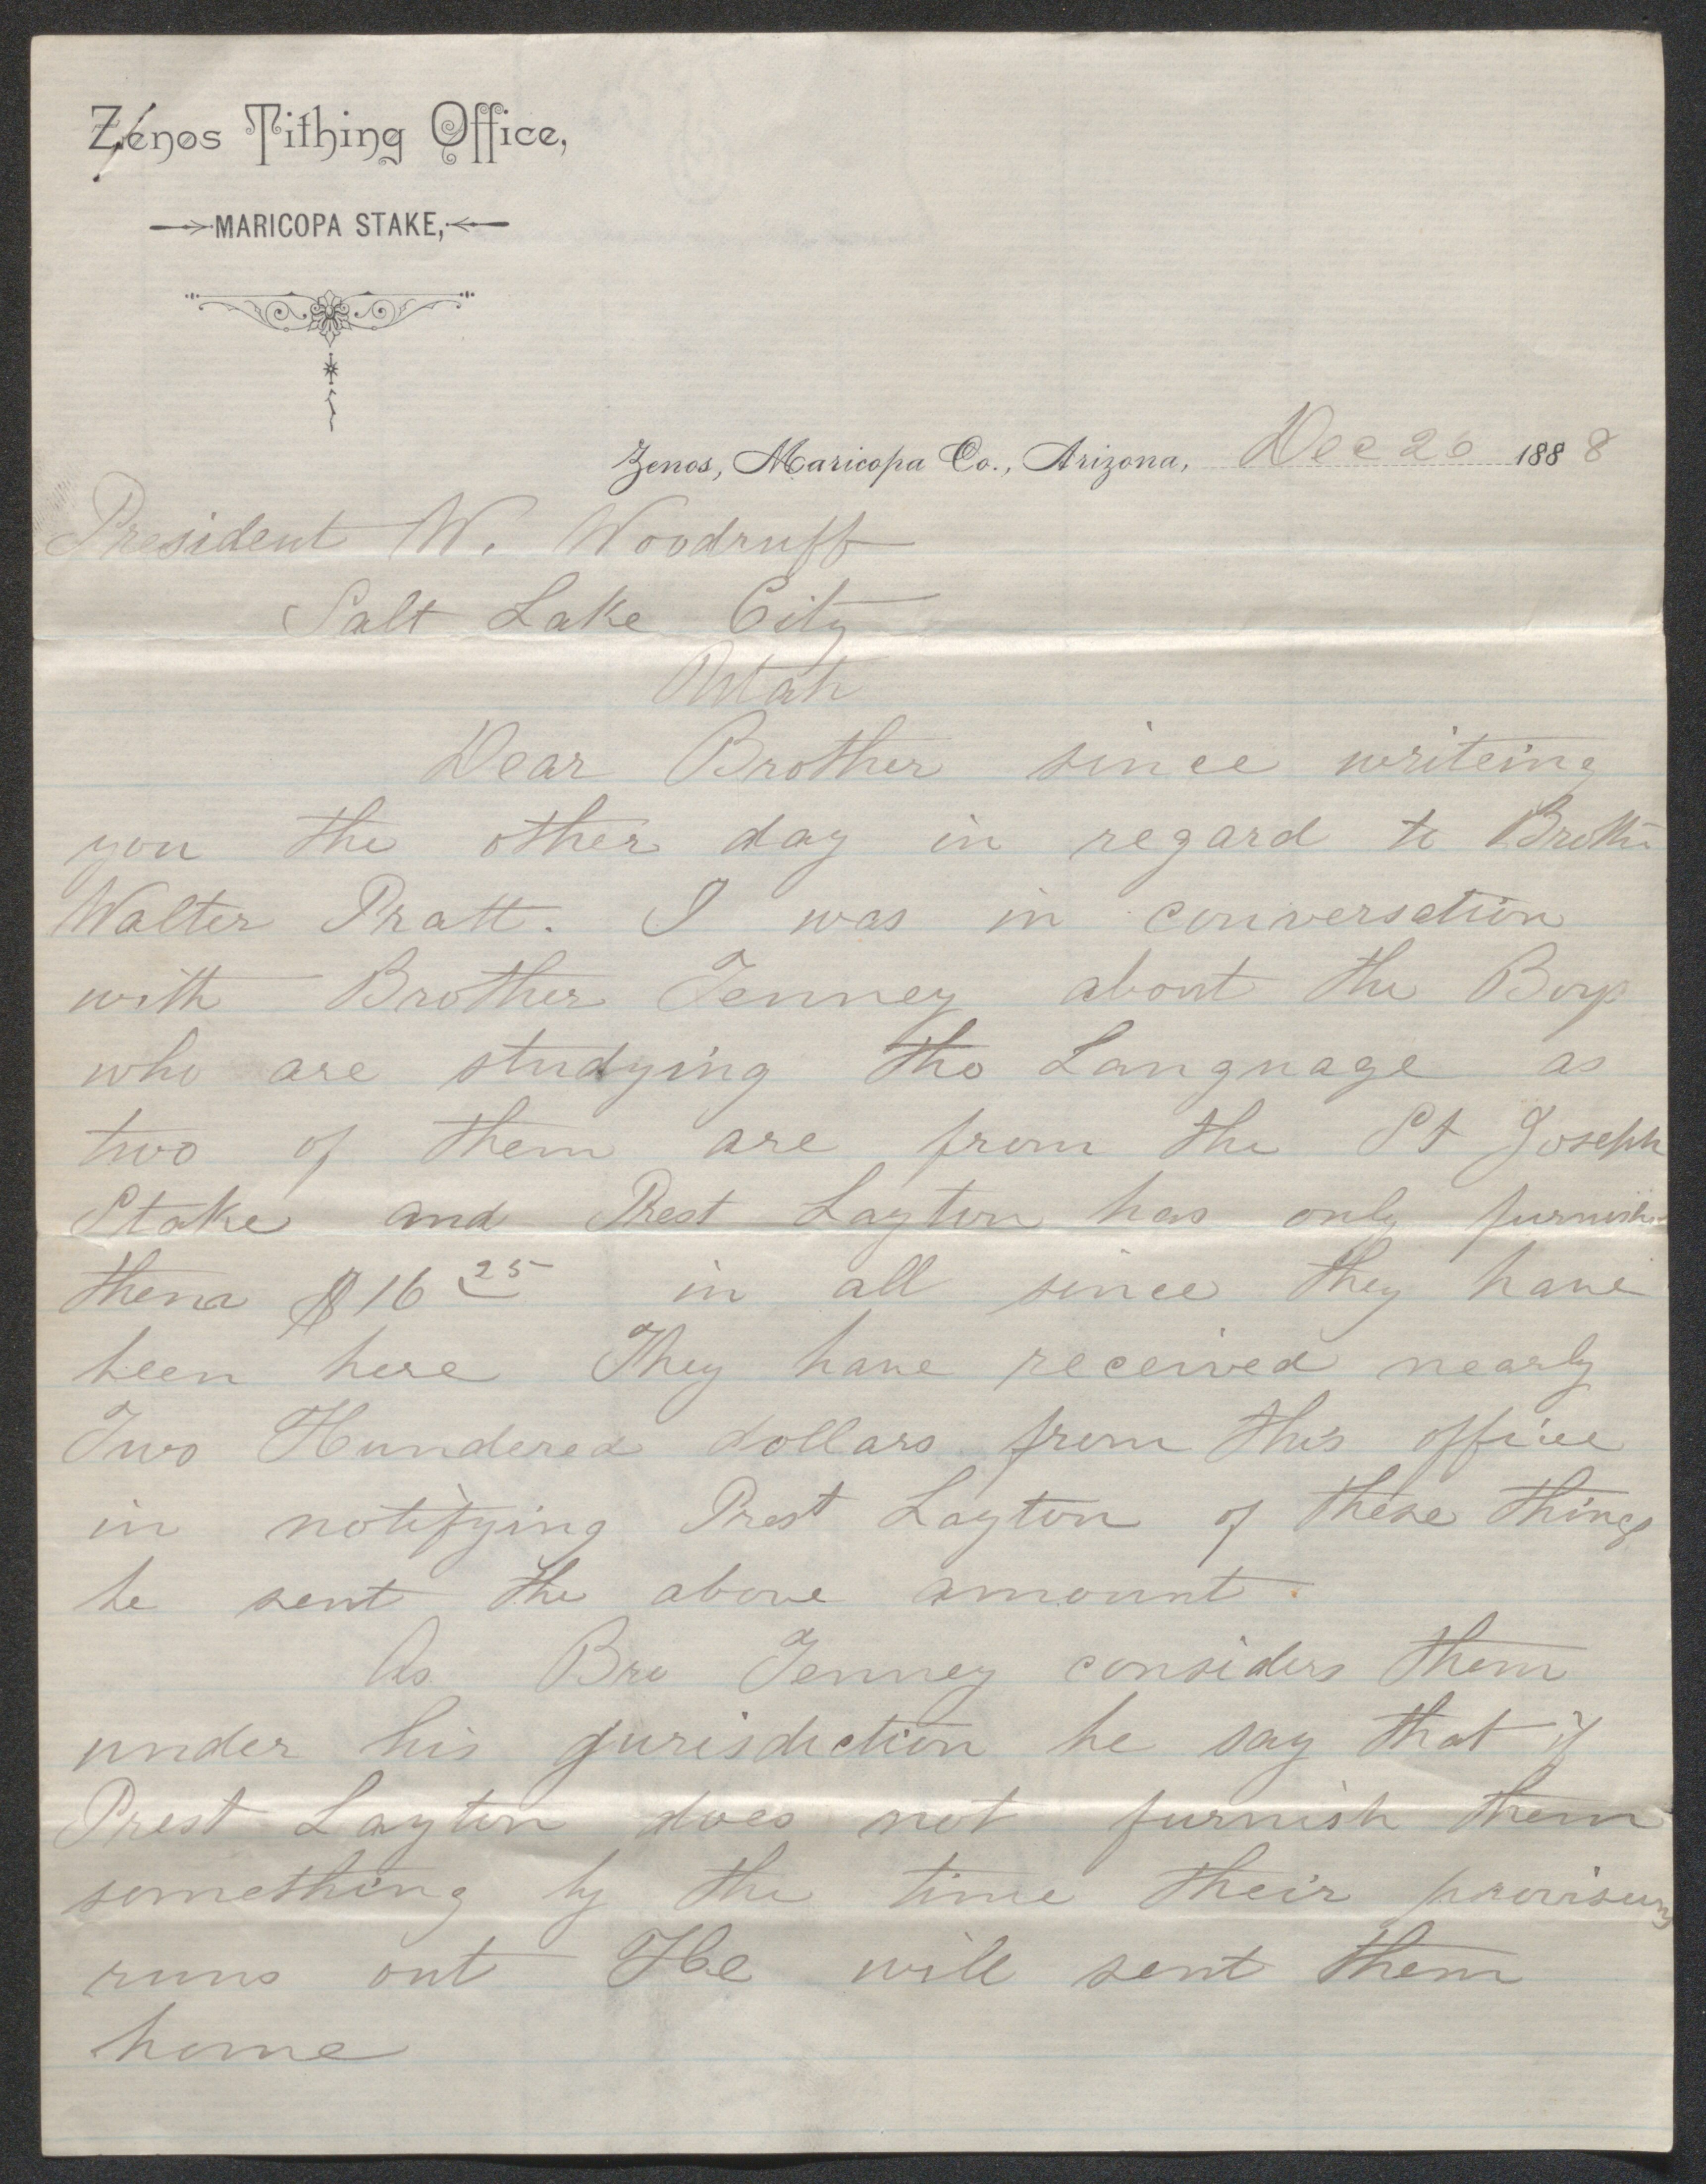 Zenos Tithing Office,
MARICOPA STAKE,
Zenos, Maricopa Co., Arizona, Dec 26 1888
President W. Woodruff
Salt Lake City
Utah
Dear Brother since writeing
you the other day in regard to Brother
Walter Pratt. I was in conversation
with Brother Tenney about the Boys
who are studying the Language as
two of them are from the St Joseph
Stake and Prest Layton has only furnish
them $16 25 in all since they have
been here They have received nearly
Two Hundered dollars from this office
in notifying Prest Layton of these things
he sent the above amount.
As Bro Tenney considers them
under his jurisdiction he say that if
Prest Layton does not furnish them
something by the time their provisions
runs out He will sent them
home